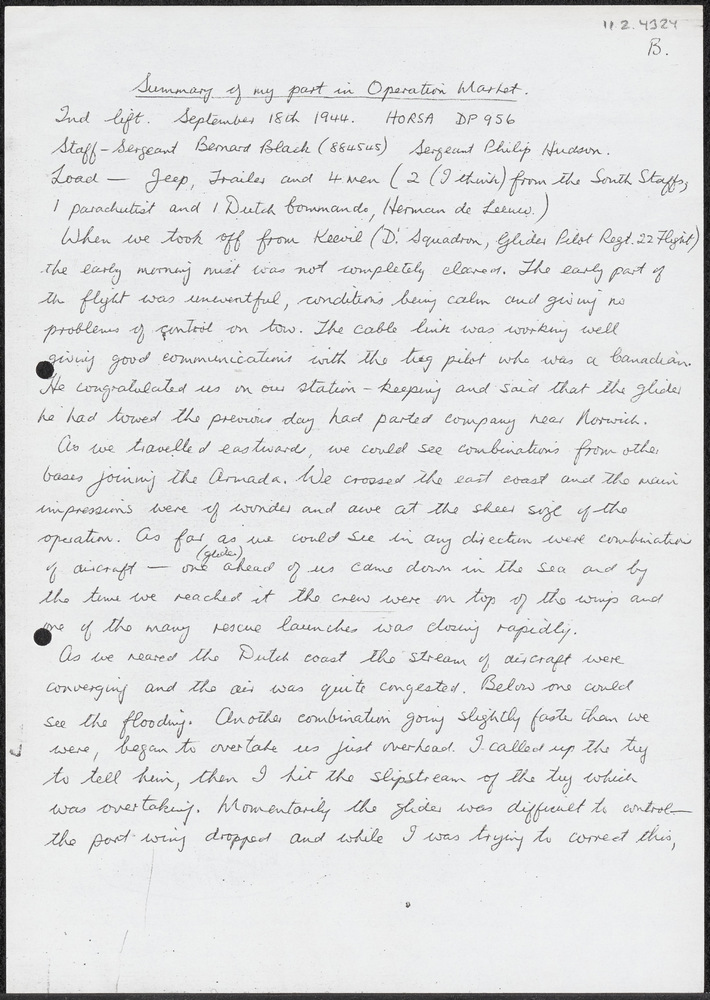 11 2. 4324
B.
Summary of my part in Operation Market.
2nd lift. September 18th 1944. HORSA DP 956
Staff-Sergeant Bernard Black (884545) Sergeant Philip Hudson.
Load — Jeep, Trailer and 4 men (2 (I think) from the South Staffs,
1 parachutist and 1 Dutch Commando, Herman de Leeuw.)
When we took off from Keevil ('D' Squadron, Glider Pilot Regt. 22 Flight)
the early morning mist was not completely cleared. The early part of
the flight was uneventful, conditions being calm and giving no
problems of control on tow. The cable link was working well
giving good communications with the tug pilot who was a Canadian.
He congratulated us on our station-keeping and said that the glider
he had towed the previous day had parted company near Norwich.
As we travelled eastwards, we could see combinations from other
bases joining the Armada. We crossed the east coast and the main
impressions were of wonder and awe at the sheer size of the
operation. As far as we could see in any direction were combinations
of aircraft — one (glider) ahead of us came down in the sea and by
the time we reached it the crew were on top of the wings and
one of the many rescue launches was closing rapidly.
As we neared the Dutch coast the stream of aircraft were
converging and the air was quite congested. Below one could
see the flooding. Another combination going slightly faster than we
were, began to overtake us just overhead. I called up the tug
to tell him, then I hit the slipstream of the tug which
was overtaking. Momentarily the glider was difficult to control—
the port wing dropped and while I was trying to correct this,